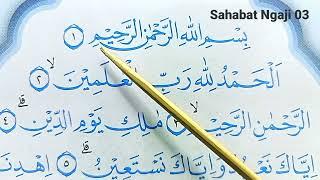 Sahabat Ngaji 03
بِسْمِ اللهِ الرَّحْمٰنِ الرَّحِيْمِ ۝١
اَلْحَمْدُ لِلّٰهِ رَبِّ الْعٰلَمِيْنَ ۝٢ۙ
الرَّحْمٰنِ الرَّحِيْمِ ۝٣ۙ مٰلِكِ يَوْمِ الدِّيْنِ ۝٤ۗ
اِيَّاكَ نَعْبُدُ وَاِيَّاكَ نَسْتَعِيْنُ ۝٥ۗ اِهْدِنَا